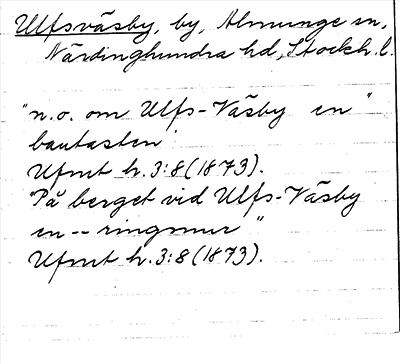 Ulfsväsby, by, Almunge sn,
Närdinghundra hd, Stockh. l.
"n.o. om Ulfs-Väsby en
bautasten"
Ufmt h. 3:8 (1873).
"På berget vid Ulfs-Väsby
en -- ringmur"
Ufmt h. 3:8 (1873).